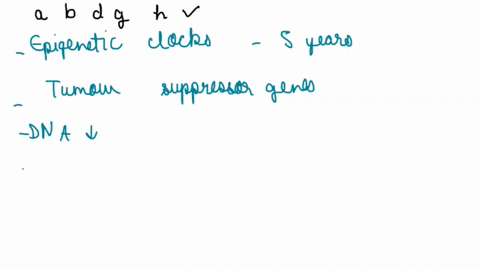 a b d g h ✓
- Epigenetic clocks - 5 years
- Tumour suppressor genes
- DNA ↓